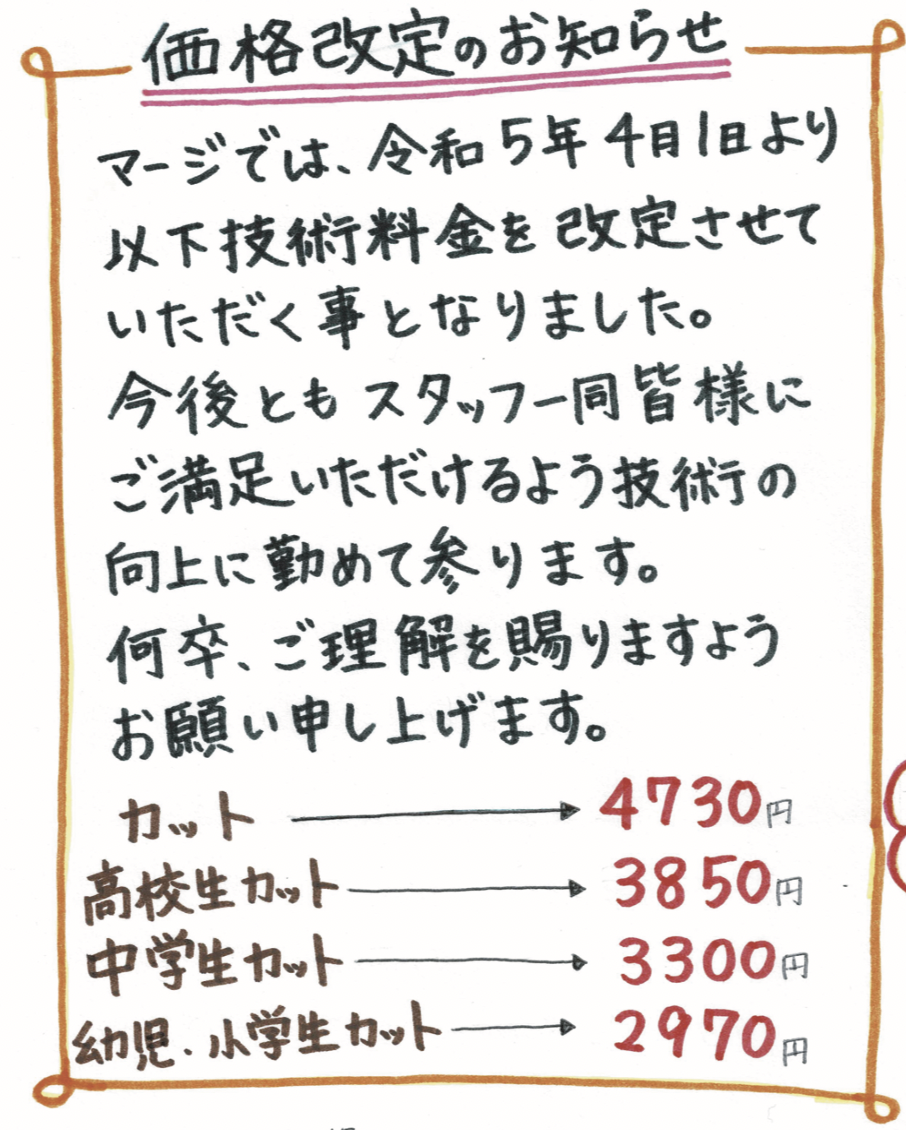 価格改定のお知らせ
マージでは、令和5年4月1日より
以下技術料金を改定させて
いただく事となりました。
今後ともスタッフ一同皆様に
ご満足いただけるよう技術の
向上に勤めて参ります。
何卒、ご理解を賜りますよう
お願い申し上げます。
カット → 4730円
高校生カット → 3850円
中学生カット → 3300円
幼児、小学生カット → 2970円